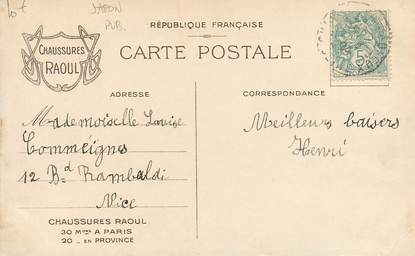 JAPON
PUB.
RÉPUBLIQUE FRANÇAISE
CHAUSSURES
RAOUL
CARTE POSTALE
ADRESSE
CORRESPONDANCE
Mademoiselle Louise
Comméignes
12 Bd Rambaldi
Nice
Meilleurs baisers
Henri
CHAUSSURES RAOUL
30 Mons A PARIS
20 _ EN PROVINCE